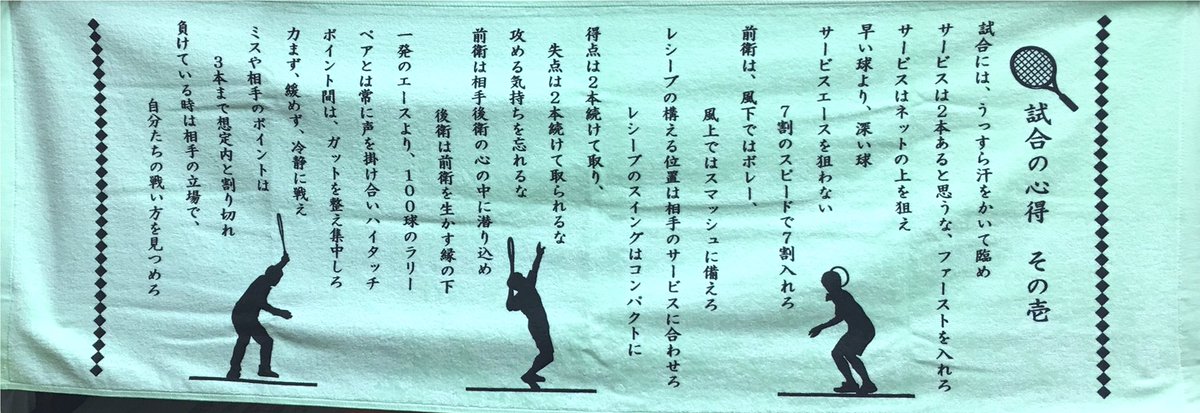 試合の心得 その壱
試合には、うっすら汗をかいて臨め
サービスは2本あると思うな、ファーストを入れろ
サービスはネットの上を狙え
早い球より、深い球
サービスエースを狙わない
7割のスピードで7割入れろ
前衛は、風下ではボレー、
風上ではスマッシュに備えろ
レシーブの構える位置は相手のサービスに合わせろ
レシーブのスイングはコンパクトに
得点は2本続けて取り、
失点は2本続けて取られるな
攻める気持ちを忘れるな
前衛は相手後衛の心の中に潜り込め
後衛は前衛を生かす縁の下
一発のエースより、100球のラリー
ペアとは常に声を掛け合いハイタッチ
ポイント間は、ガットを整え集中しろ
力まず、緩めず、冷静に戦え
ミスや相手のポイントは
3本まで想定内と割り切れ
負けている時は相手の立場で、
自分たちの戦い方を見つめろ